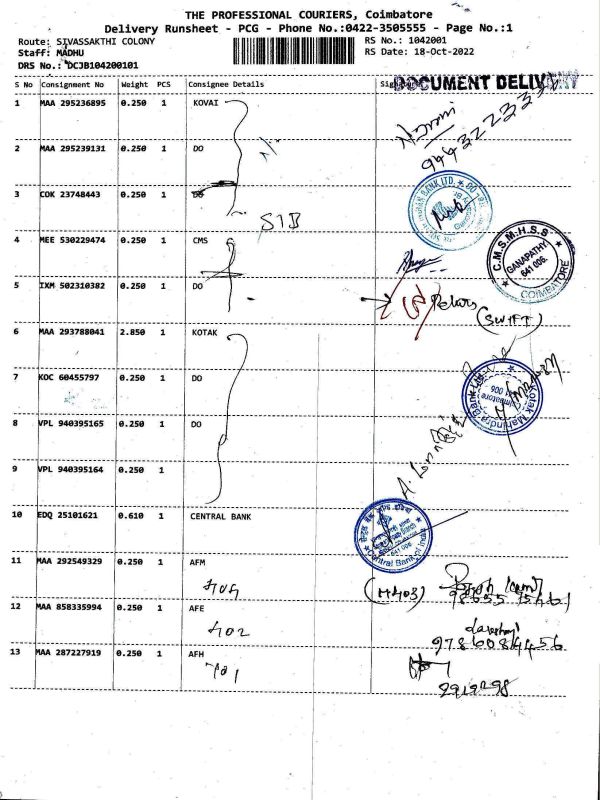 THE PROFESSIONAL COURIERS, Coimbatore
Delivery Runsheet - PCG - Phone No.:0422-3505555 - Page No.:1
Route: SIVASSAKTHI COLONY RS No.: 1042001
Staff: MADHU RS Date: 18-Oct-2022
DRS No.: DCJB104200101
DOCUMENT DELIVERY
S No Consignment No Weight PCS Consignee Details
1 MAA 295236895 0.250 1 KOVAI
2 MAA 295239131 0.250 1 DO
3 COK 23748443 0.250 1 DO
SIB
4 MEE 530229474 0.250 1 CMS
C.M.S.M.H.S.S
GANAPATHY
641 006.
COIMBATORE
5 IXM 502310382 0.250 1 DO
(SWIFT)
6 MAA 293788041 2.850 1 KOTAK
7 KOC 60455797 0.250 1 DO
Kotak Mahindra Bank
8 VPL 940395165 0.250 1 DO
9 VPL 940395164 0.250 1
10 EDQ 25101621 0.610 1 CENTRAL BANK
Central Bank of India
11 MAA 292549329 0.250 1 AFM
12 MAA 858335994 0.250 1 AFE
402
9786084456
13 MAA 287227919 0.250 1 AFH
701